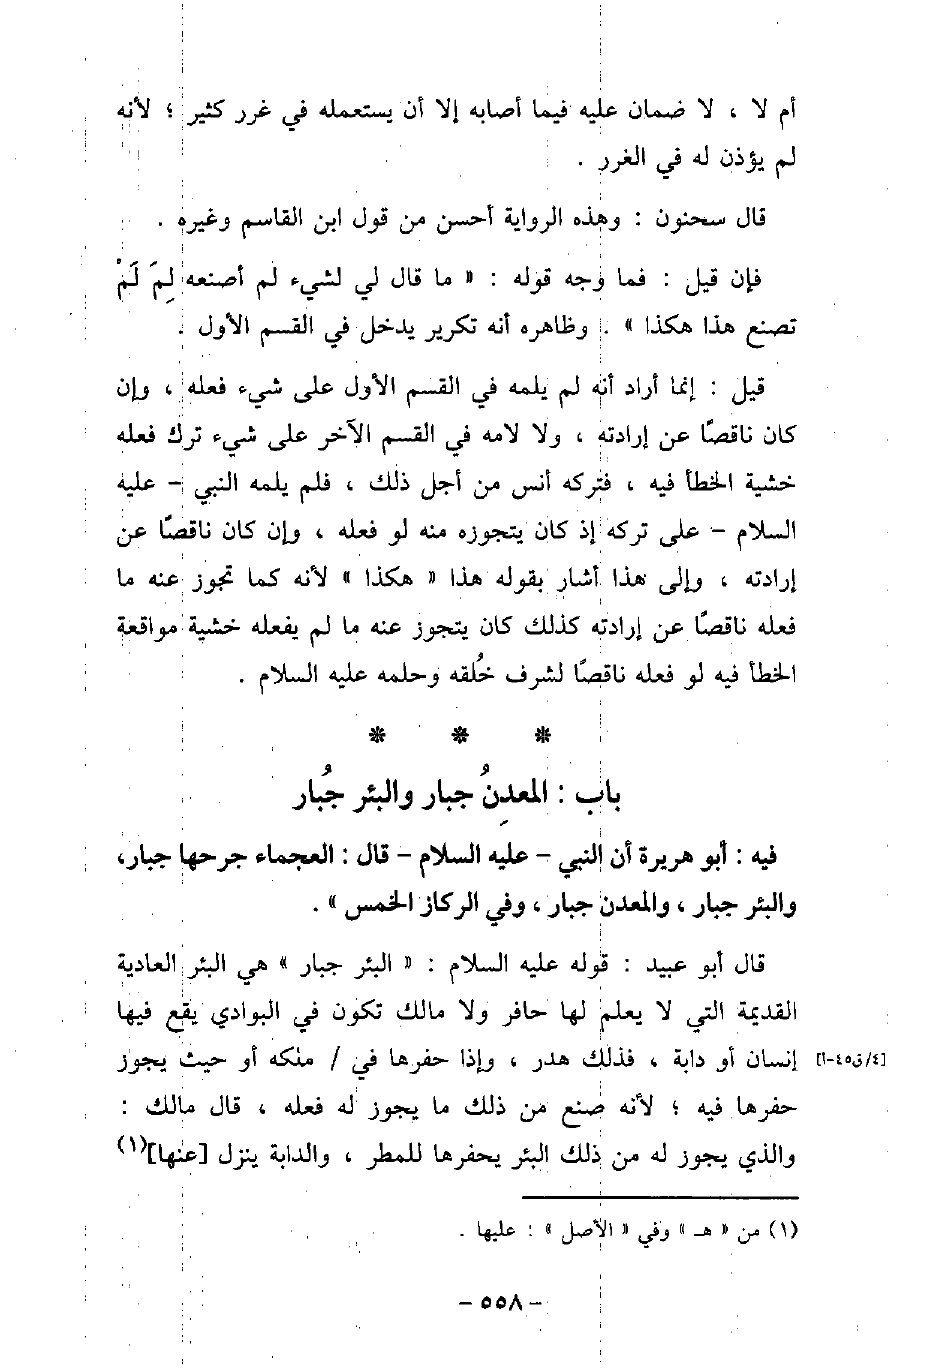 أم لا ، لا ضمان عليه فيما أصابه إلا أن يستعمله في غرر كثير ؛ لأنه
لم يؤذن له في الغرر .
قال سحنون : وهذه الرواية أحسن من قول ابن القاسم وغيره .
فإن قيل : فما وجه قوله : « ما قال لي لشيء لم أصنعه لِمَ لَمْ
تصنع هذا هكذا » . وظاهره أنه تكرير يدخل في القسم الأول .
قيل : إنما أراد أنه لم يلمه في القسم الأول على شيء فعله ، وإن
كان ناقصًا عن إرادته ، ولا لامه في القسم الآخر على شيء ترك فعله
خشية الخطأ فيه ، فتركه أنس من أجل ذلك ، فلم يلمه النبي – عليه
السلام – على تركه إذ كان يتجوزه منه لو فعله ، وإن كان ناقصًا عن
إرادته ، وإلى هذا أشار بقوله هذا « هكذا » لأنه كما تجوز عنه ما
فعله ناقصًا عن إرادته كذلك كان يتجوز عنه ما لم يفعله خشية مواقعة
الخطأ فيه لو فعله ناقصًا لشرف خُلقه وحلمه عليه السلام .
* * *
باب : المعدِنُ جبار والبئر جُبار
فيه : أبو هريرة أن النبي – عليه السلام – قال : العجماء جرحها جبار،
والبئر جبار ، والمعدن جبار ، وفي الركاز الخمس » .
قال أبو عبيد : قوله عليه السلام : « البئر جبار » هي البئر العادية
القديمة التي لا يعلم لها حافر ولا مالك تكون في البوادي يقع فيها
[٤/ق٤٥-أ] إنسان أو دابة ، فذلك هدر ، وإذا حفرها في / ملكه أو حيث يجوز
حفرها فيه ؛ لأنه صنع من ذلك ما يجوز له فعله ، قال مالك :
والذي يجوز له من ذلك البئر يحفرها للمطر ، والدابة ينزل [عنها](١)
(١) من « هـ » وفي « الأصل » : عليها .
– ٥٥٨ –